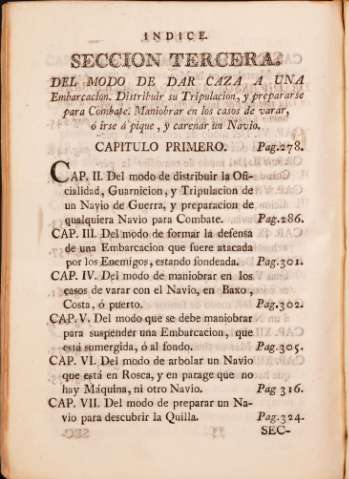 INDICE.
SECCION TERCERA.
DEL MODO DE DAR CAZA A UNA
Embarcacion. Distribuir su Tripulacion, y prepararse
para Combate. Maniobrar en los casos de varar,
ó irse á pique, y carenar un Navio.
CAPITULO PRIMERO. Pag.278.
CAP. II. Del modo de distribuir la Ofi-
cialidad, Guarnicion, y Tripulacion de
un Navio de Guerra, y preparacion de
qualquiera Navio para Combate. Pag.286.
CAP. III. Del modo de formar la defensa
de una Embarcacion que fuere atacada
por los Enemigos, estando fondeada. Pag.301.
CAP. IV. Del modo de maniobrar en los
casos de varar con el Navio, en Baxo,
Costa, ó puerto. Pag.302.
CAP. V. Del modo que se debe maniobrar
para suspender una Embarcacion, que
está sumergida, ó al fondo. Pag.305.
CAP. VI. Del modo de arbolar un Navio
que está en Rosca, y en parage que no
hay Máquina, ni otro Navio. Pag 316.
CAP. VII. Del modo de preparar un Na-
vio para descubrir la Quilla. Pag.324.
SEC-